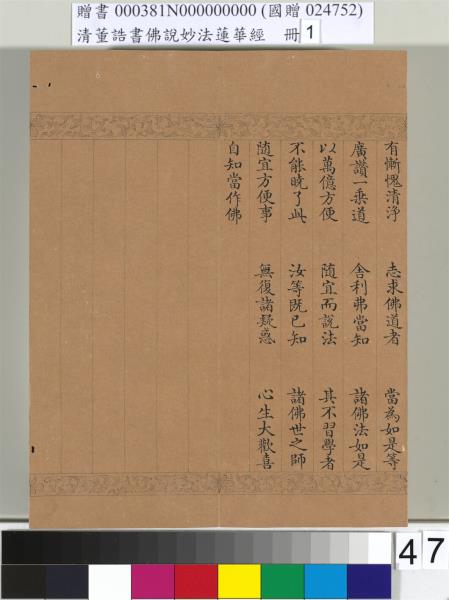 贈書 000381N000000000 (國贈 024752)
清董誥書佛說妙法蓮華經 冊 1
有慚愧清淨 志求佛道者 當為如是等
廣讚一乘道 舍利弗當知 諸佛法如是
以萬億方便 隨宜而說法 其不習學者
不能曉了此 汝等既已知 諸佛世之師
隨宜方便事 無復諸疑惑 心生大歡喜
自知當作佛
47